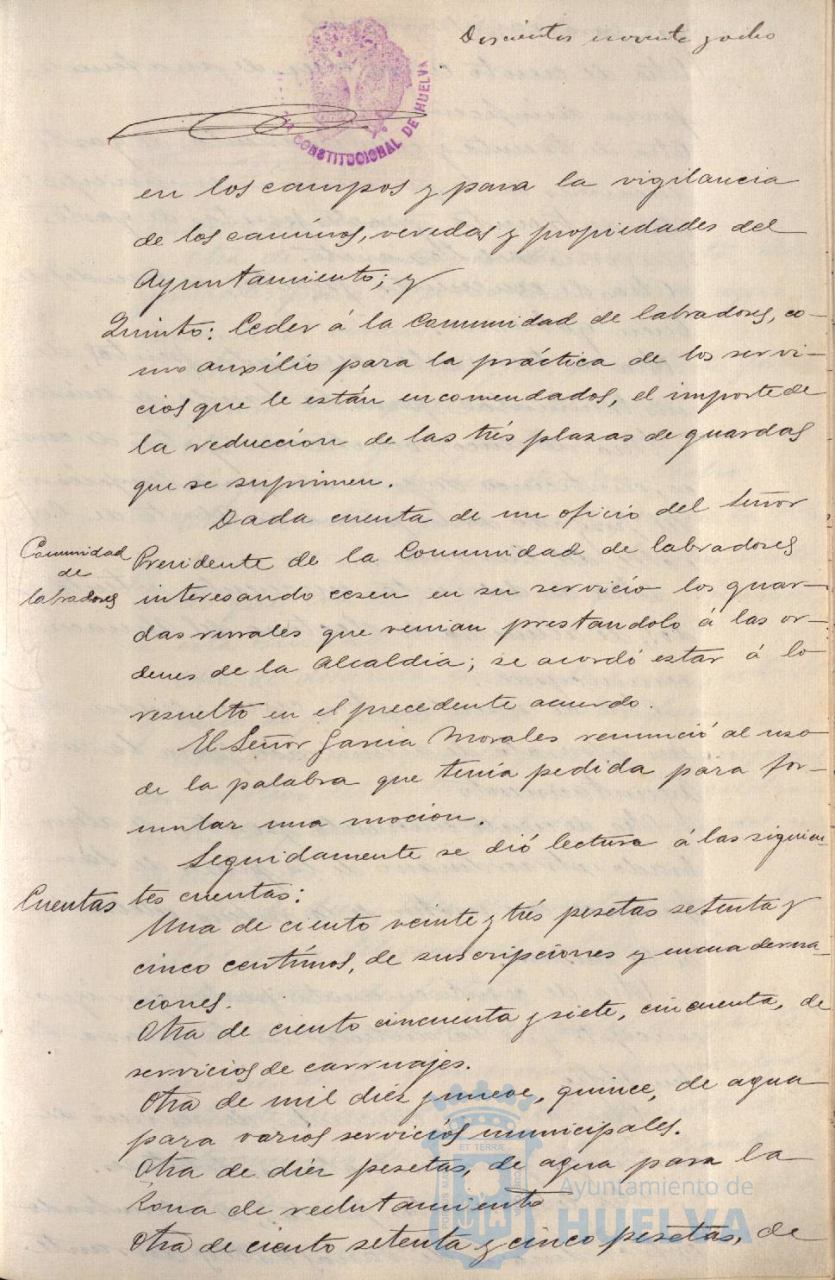 Doscientos noventa y ocho
CONSTITUCIONAL DE HUELVA
en los campos y para la vigilancia
de los caminos, veredas y propiedades del
Ayuntamiento; y
Quinto: Ceder á la Comunidad de labradores, co-
mo auxilio para la práctica de los servi-
cios que le están encomendados, el importe de
la reducción de las trés plazas de guardas
que se suprimen.
Dada cuenta de un oficio del Señor
Comunidad
de
labradores
Presidente de la Comunidad de labradores
interesando cesen en su servicio los guar-
das rurales que venian prestandolo á las or-
denes de la Alcaldia; se acordó estar á lo
resuelto en el precedente acuerdo.
El Señor Garcia Morales renunció al uso
de la palabra que tenía pedida para for-
mular una moción.
Seguidamente se dió lectura á las siguien-
Cuentas
tes cuentas:
Una de ciento veinte y trés pesetas setenta y
cinco centimos, de suscripciones y encuaderna-
ciones.
Otra de ciento cincuenta y siete, cincuenta, de
servicios de carruajes.
Otra de mil diez y nueve, quince, de agua
para varios servicios municipales.
Otra de diéz pesetas, de agua para la
Zona de reclutamiento
Otra de ciento setenta y cinco pesetas, de
ET TERRÆ
Ayuntamiento de
HUELVA